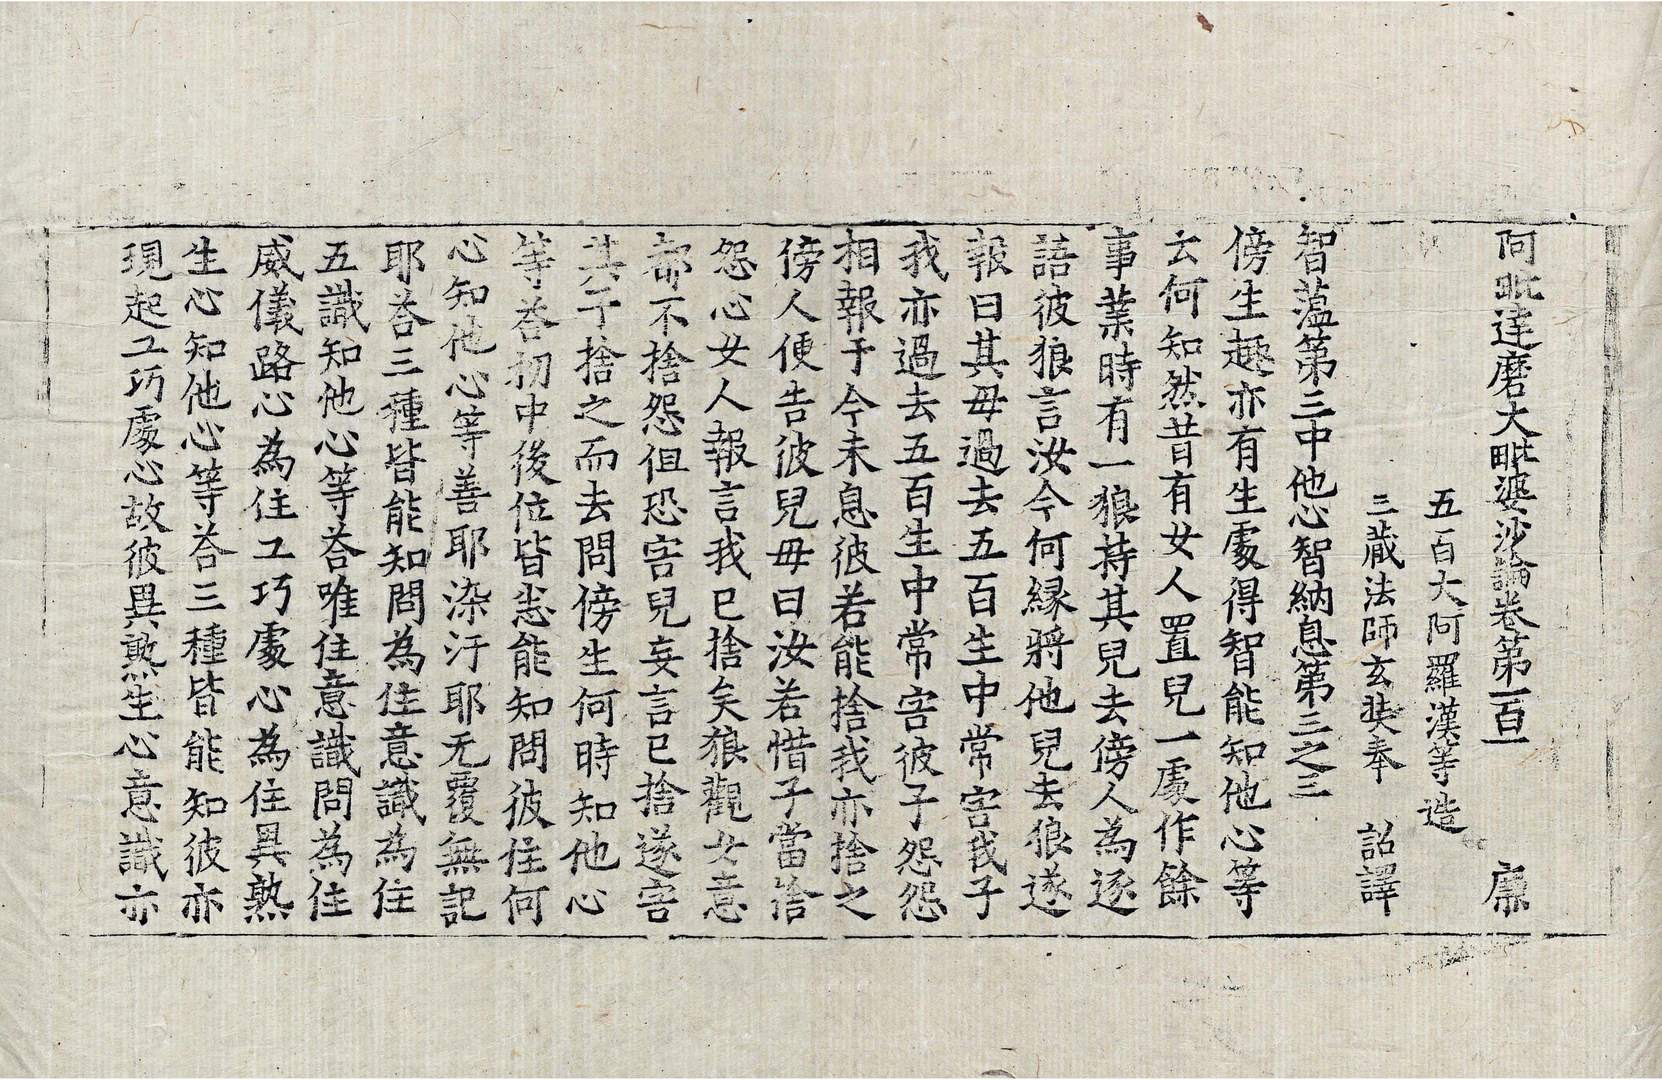 阿毗達磨大毗婆沙論卷第一百一 廉
五百大阿羅漢等造
三藏法師玄奘奉 詔譯
智蘊第三中他心智納息第三之三
傍生趣亦有生處得智能知他心等
云何知然昔有女人置兒一處作餘
事業時有一狼持其兒去傍人為逐
語彼狼言汝今何緣將他兒去狼遂
報曰其母過去五百生中常害我子
我亦過去五百生中常害彼子怨怨
相報于今未息彼若能捨我亦捨之
傍人便告彼兒母曰汝若惜子當捨
怨心女人報言我已捨矣狼觀女意
都不捨怨但恐害兒妄言已捨遂害
其子捨之而去問傍生何時知他心
等荅初中後位皆悉能知問彼住何
心知他心等善耶染汙耶无覆無記
耶荅三種皆能知問為住意識為住
五識知他心等荅唯住意識問為住
威儀路心為住工巧處心為住異熟
生心知他心等荅三種皆能知彼亦
現起工巧處心故彼異熟生心意識亦